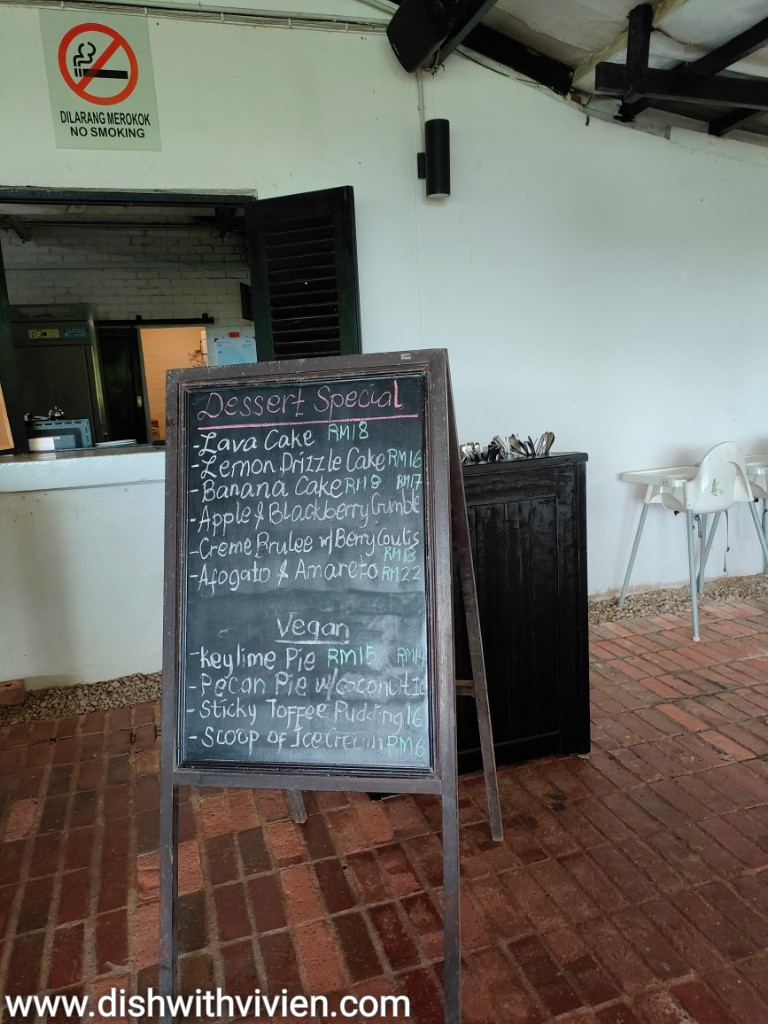 DILARANG MEROKOK
NO SMOKING
Dessert Special
-Lava Cake RM18
-Lemon Drizzle Cake RM16
-Banana Cake RM18 RM17
-Apple & Blackberry Crumble
-Creme Brulee w/ Berry Coulis
RM13
-Afogato & Amareto RM22
Vegan
-Keylime Pie RM15 RM14
-Pecan Pie w/ coconut Ic
-Sticky Toffee Pudding 16
-Scoop of Ice Cream RM6
www.dishwithvivien.com